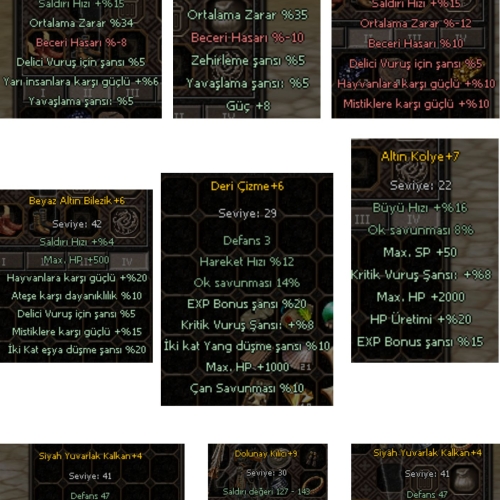 Saldırı Hızı +%15
Ortalama Zarar %34
Beceri Hasarı %-8
Delici Vuruş için şansı %5
Yarı insanlara karşı güçlü +%6
Yavaşlama şansı: %5
Ortalama Zarar %35
Beceri Hasarı %-10
Zehirleme şansı %5
Yavaşlama şansı: %5
Güç +8
Saldırı Hızı +%15
Ortalama Zarar %-12
Beceri Hasarı %10
Delici Vuruş için şansı %5
Hayvanlara karşı güçlü +%10
Mistiklere karşı güçlü +%10
I II III
III
Beyaz Altın Bilezik+6
Seviye: 42
Saldırı Hızı +%4
Max. HP +500
Hayvanlara karşı güçlü +%20
Ateşe karşı dayanıklılık %10
Delici Vuruş için şansı %5
Mistiklere karşı güçlü +%15
İki Kat eşya düşme şansı %20
I IV
Deri Çizme+6
Seviye: 29
Defans 3
Hareket Hızı %12
Ok savunması 14%
EXP Bonus şansı %20
Kritik Vuruş Şansı: +%8
İki kat Yang düşme şansı %10
Max. HP +1000
Çan Savunması %10
21
Altın Kolye+7
Seviye: 22
Büyü Hızı +%16
Ok savunması 8%
Max. SP +50
Kritik Vuruş Şansı: +%8
Max. HP +2000
HP Üretimi +%20
EXP Bonus şansı %15
III IV
Siyah Yuvarlak Kalkan+4
Seviye: 41
Defans 47
Dolunay Kılıcı+9
Seviye: 30
Saldırı değeri 127 - 143
Siyah Yuvarlak Kalkan+4
Seviye: 41
Defans 47